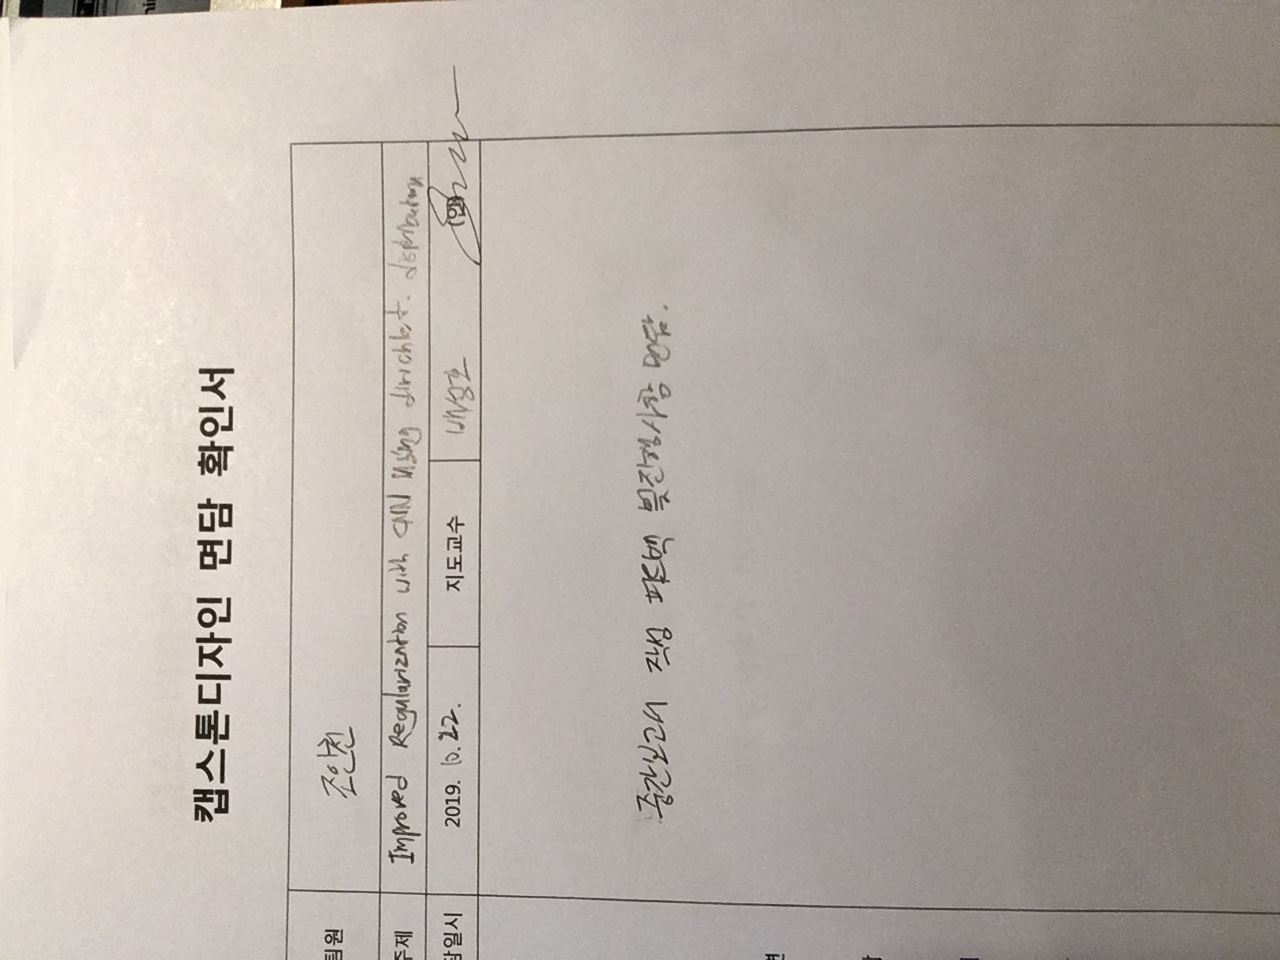 캡스톤디자인 면담 확인서
팀원 조안친
주제 Improved Regularization with CNN Using dirichlet. distribution
담일시 2019. 10. 22. 지도교수 배성호 (인)
중간보고서 작성 피드백 및 진행사항 면담.
면